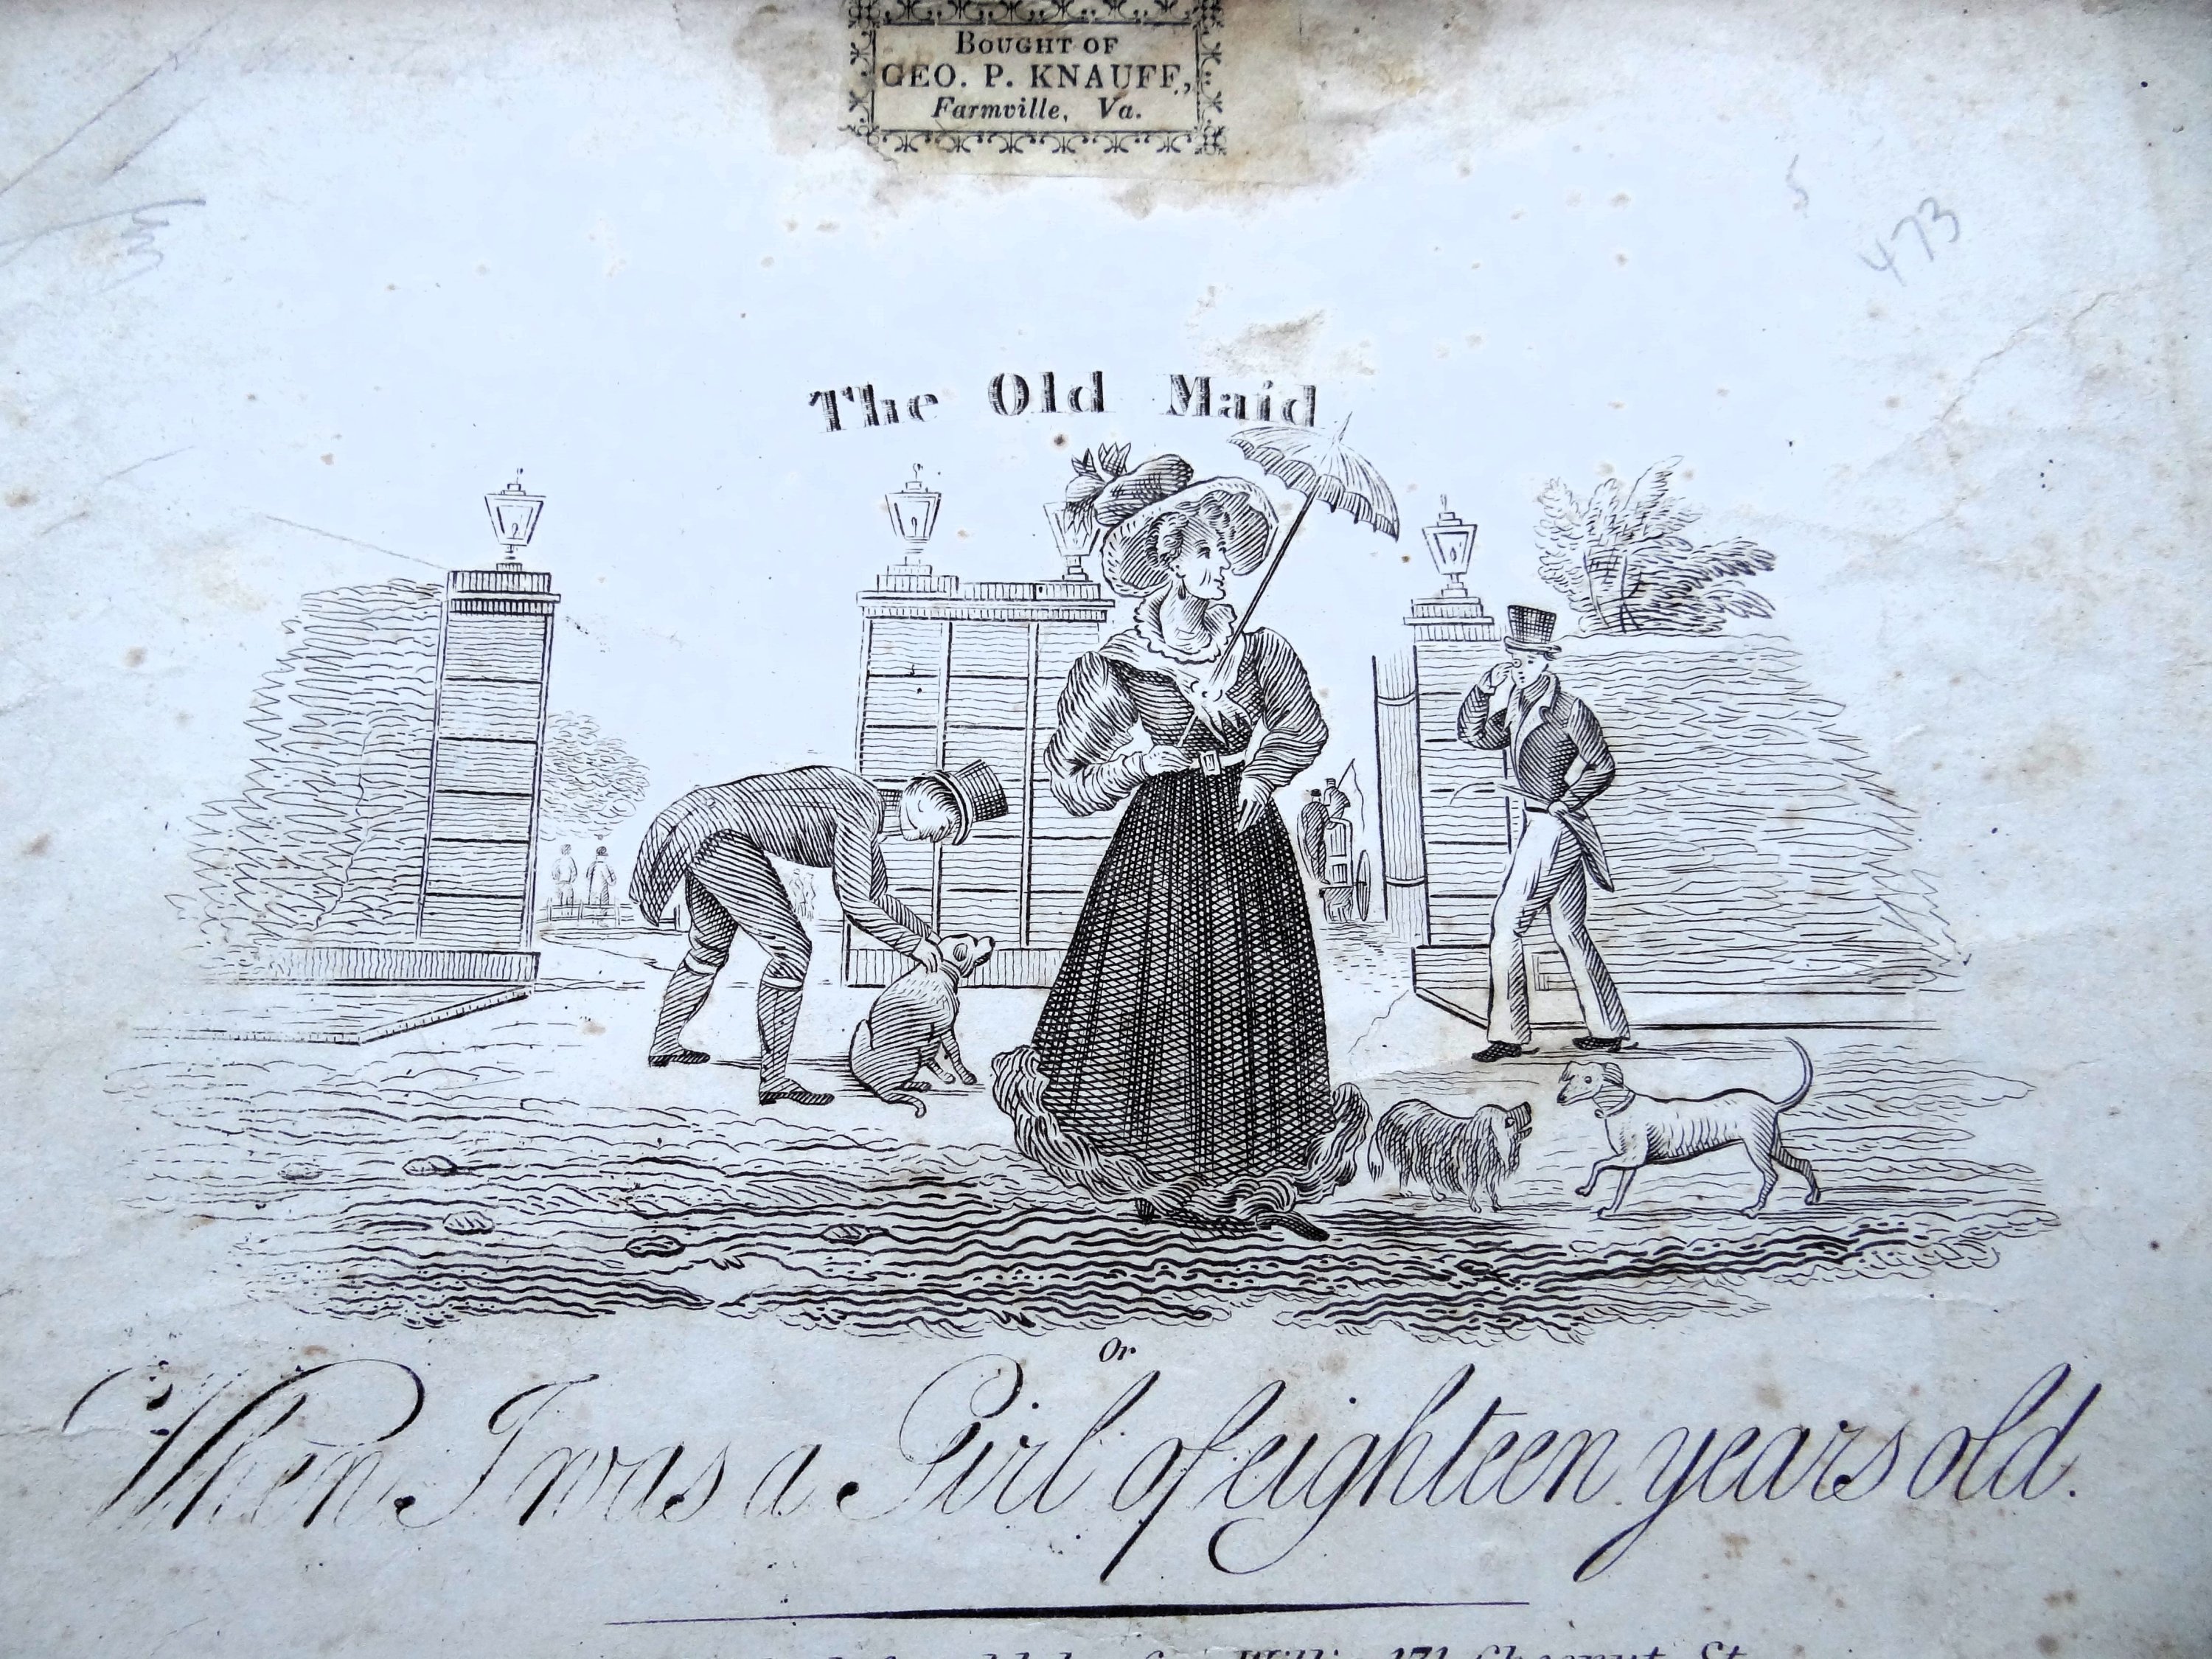 BOUGHT OF
GEO. P. KNAUFF,
Farmville, Va.
5
473
The Old Maid
Or
When I was a Girl of eighteen years old.
Willig 171 Chesnut St